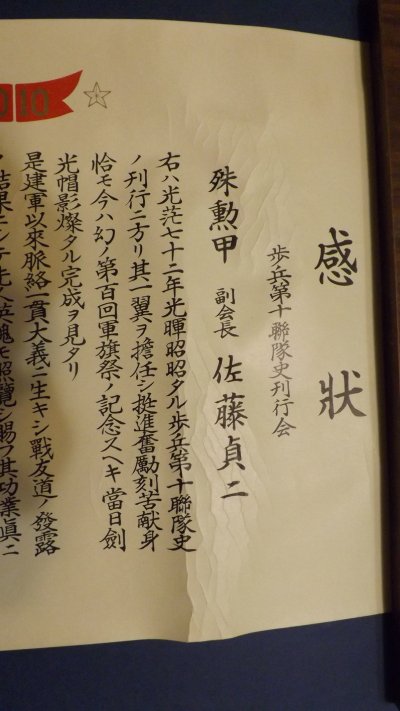 感狀
歩兵第十聯隊史刊行会
殊勲甲 副会長 佐藤貞二
右ハ光茫七十二年光暉昭昭タル歩兵第十聯隊史
ノ刊行ニ方リ其一翼ヲ擔任シ挺進奮勵刻苦献身
恰モ今ハ幻ノ第百回軍旗祭ノ記念スヘキ當日劍
光帽影燦タル完成ヲ見タリ
是建軍以來脈絡一貫大義ニ生キシ戰友道ノ發露
結果ニシテ
魂モ照覽シ賜フ其功業眞ニ
10